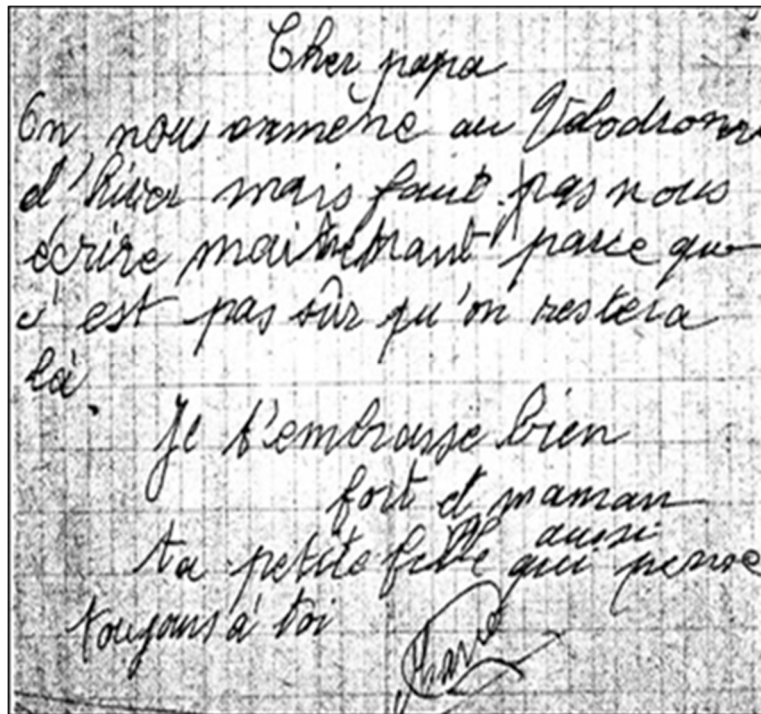 Cher papa
On nous emmène au Vélodrome
d'hiver mais faut pas nous
écrire maintenant parce que
c'est pas sûr qu'on restera
là.
Je t'embrasse bien
fort et maman
aussi
ta petite fille qui pense
toujours à toi